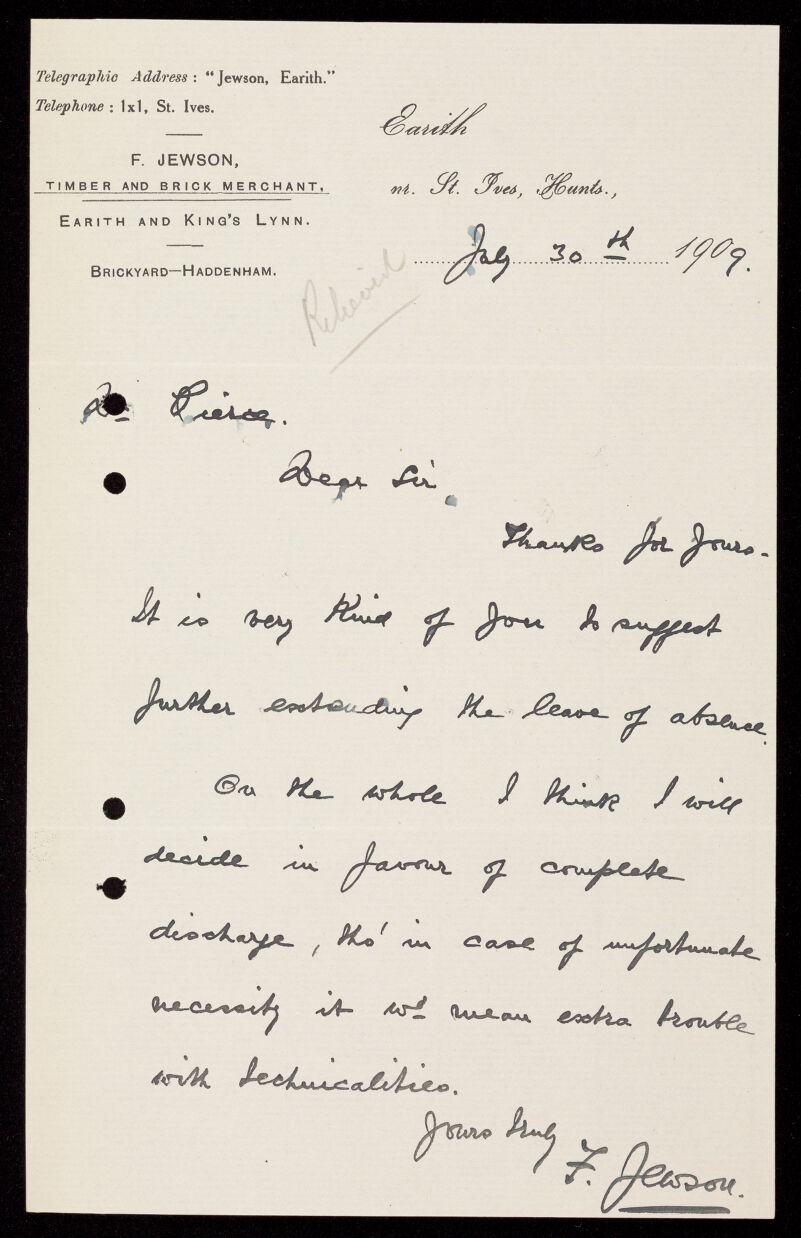 Telegraphic Address : "Jewson, Earith."
Telephone : 1x1, St. Ives.
F. JEWSON,
TIMBER AND BRICK MERCHANT,
EARITH AND KING'S LYNN.
BRICKYARD—HADDENHAM.
Earith
nr. St. Ives, Hunts.,
July 30th 1909.
Relieved
Dr Pierce.
Dear Sir,
Thanks for yours.
It is very kind of you to suggest
further extending the leave of absence.
On the whole I think I will
decide in favour of complete
discharge, tho' in case of unfortunate
necessity it wd mean extra trouble
with technicalities.
Yours truly
F. Jewson.